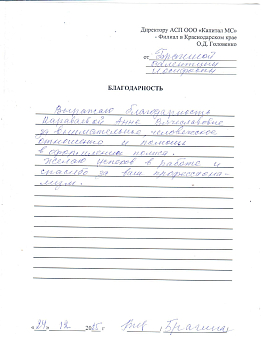 Директору АСП ООО «Капитал МС»
- Филиал в Краснодарском крае
О.Д. Головенко
от Брагиной
Валентины
БЛАГОДАРНОСТЬ
Выражаю благодарность
Анне Вячеславовне
за внимательное, человеческое
отношение и помощь
в оформлении полиса.
Желаю успехов в работе и
спасибо за ваш профессиона-
лизм.
«24» 12 2015 г. Брагина